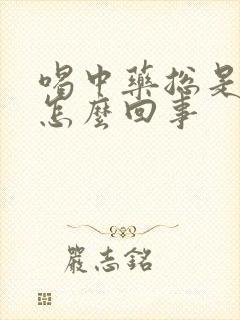 喝中藥總是
怎麼回事
嚴志銘